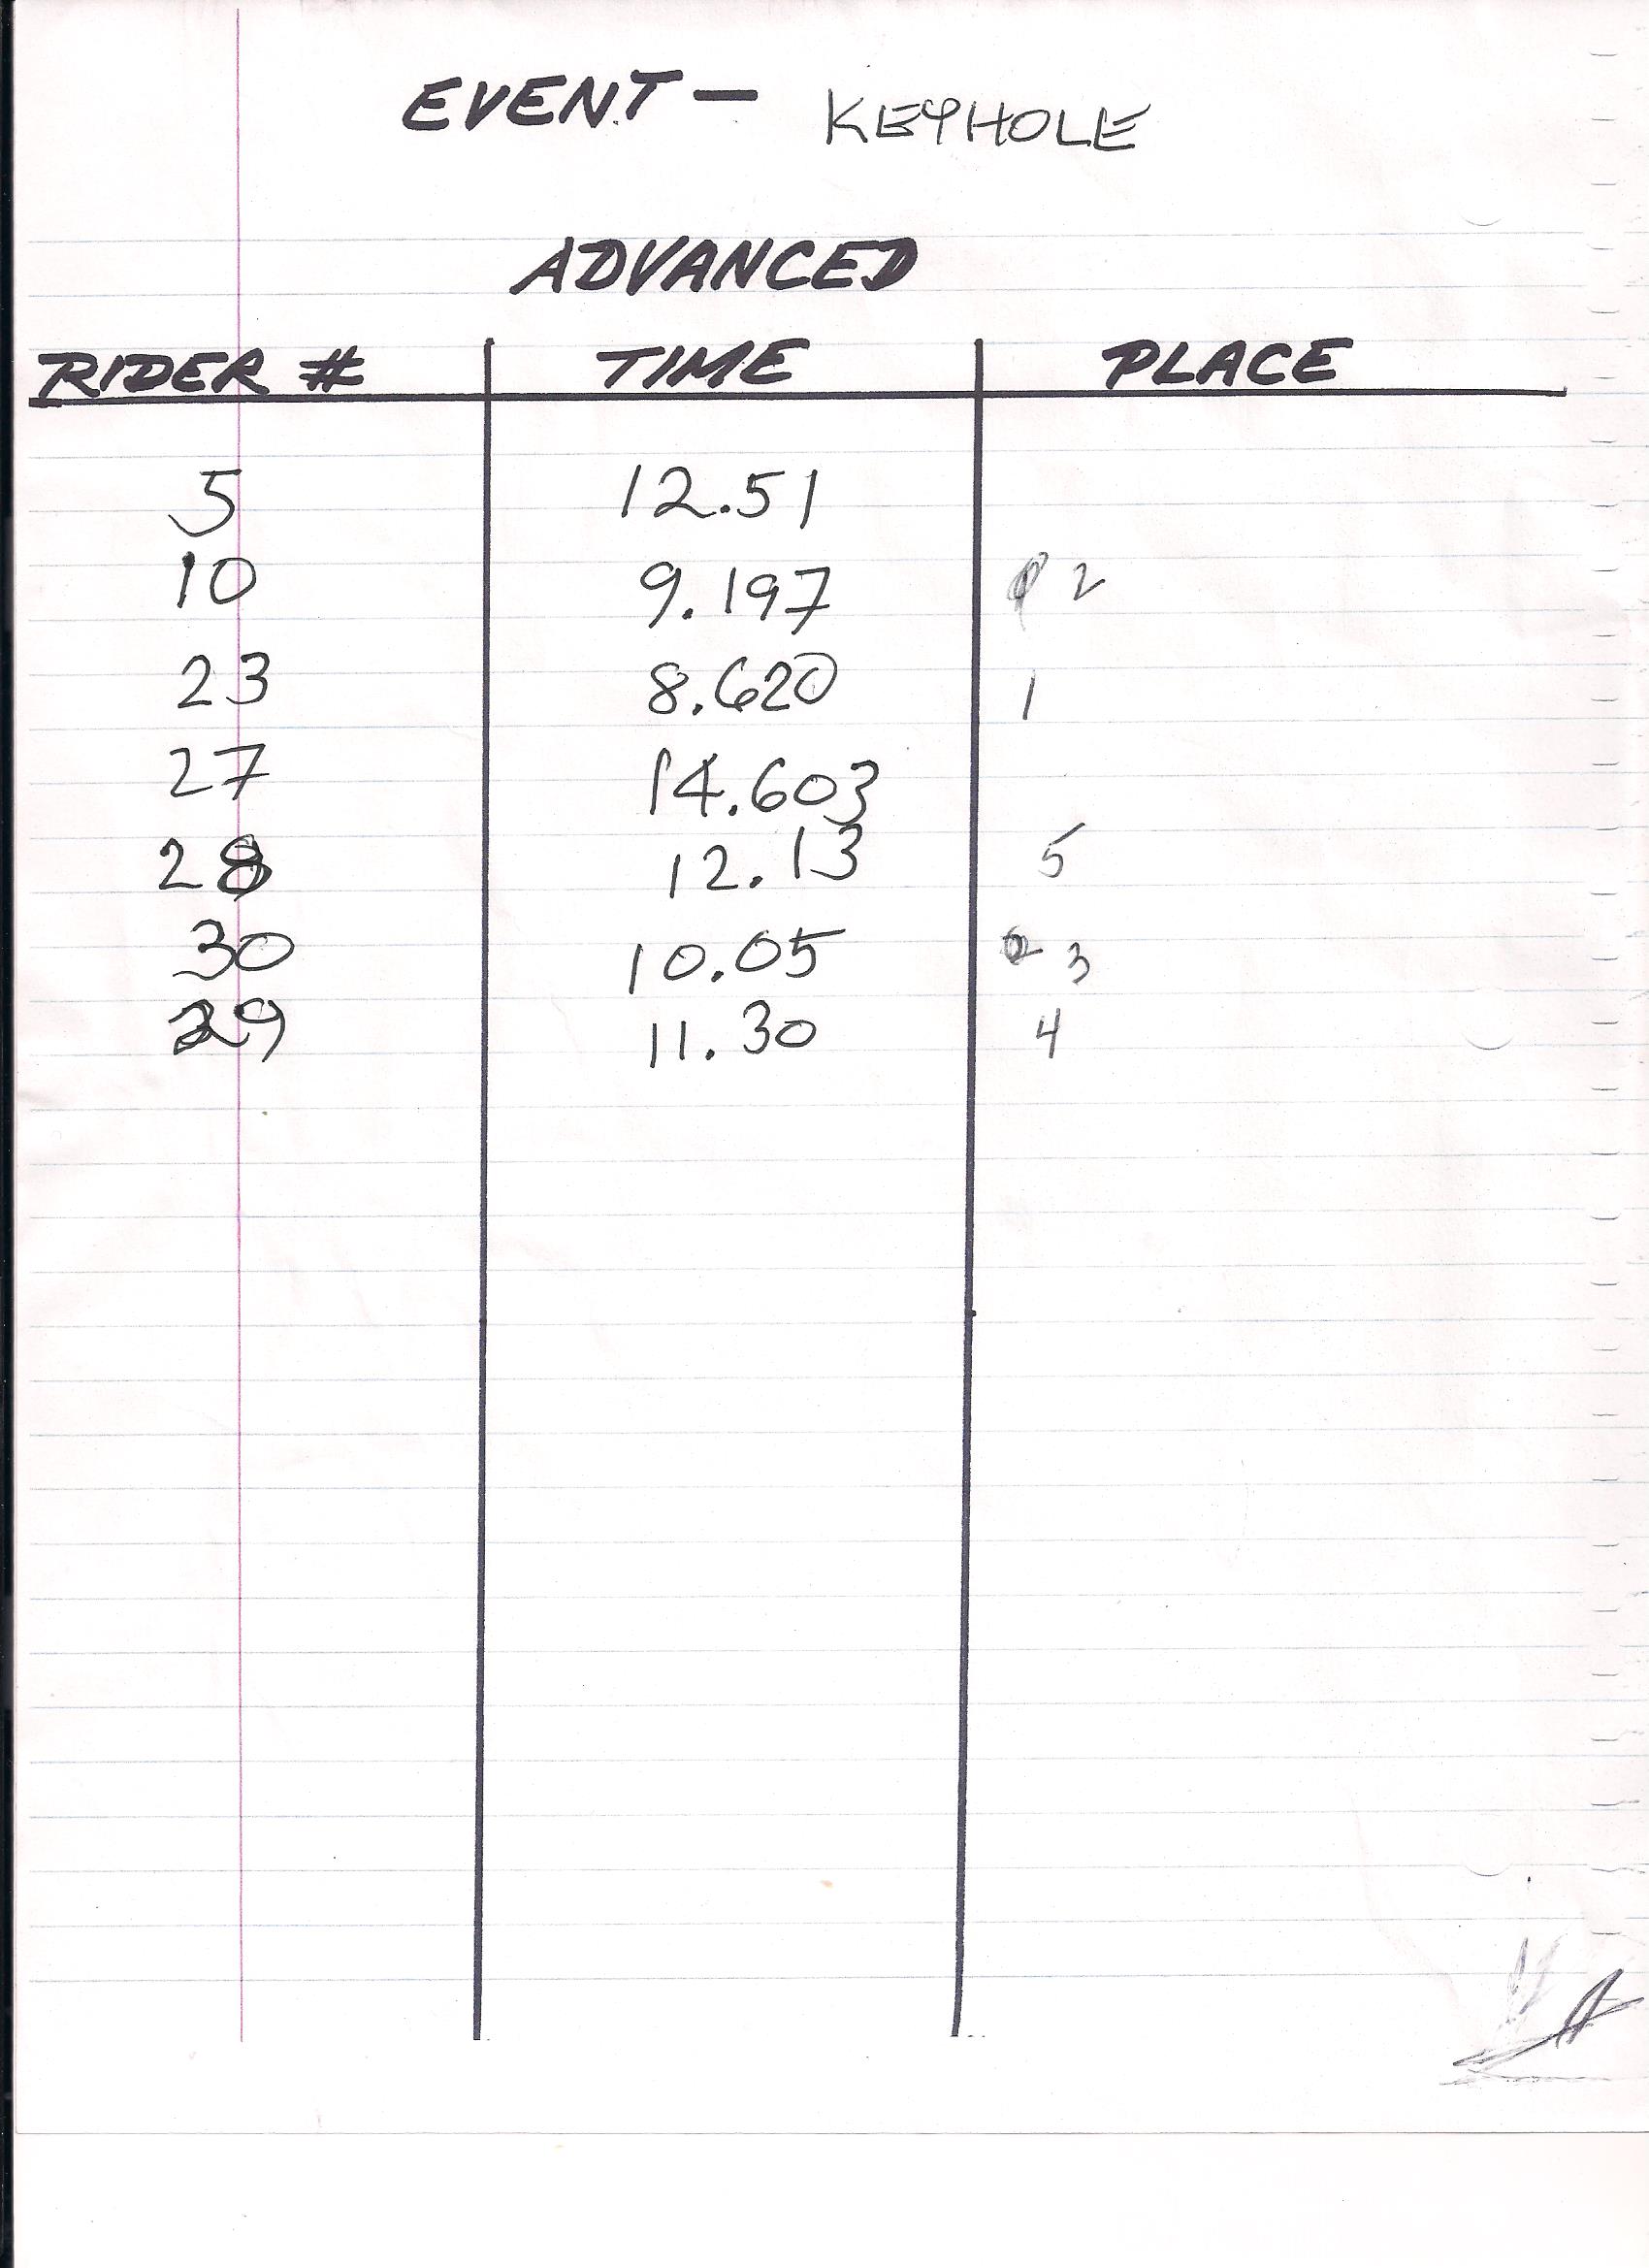 EVENT - KEYHOLE
ADVANCED
RIDER # TIME PLACE
5 12.51
10 9.197 2
23 8.620 1
27 14.603
28 12.13 5
30 10.05 3
29 11.30 4